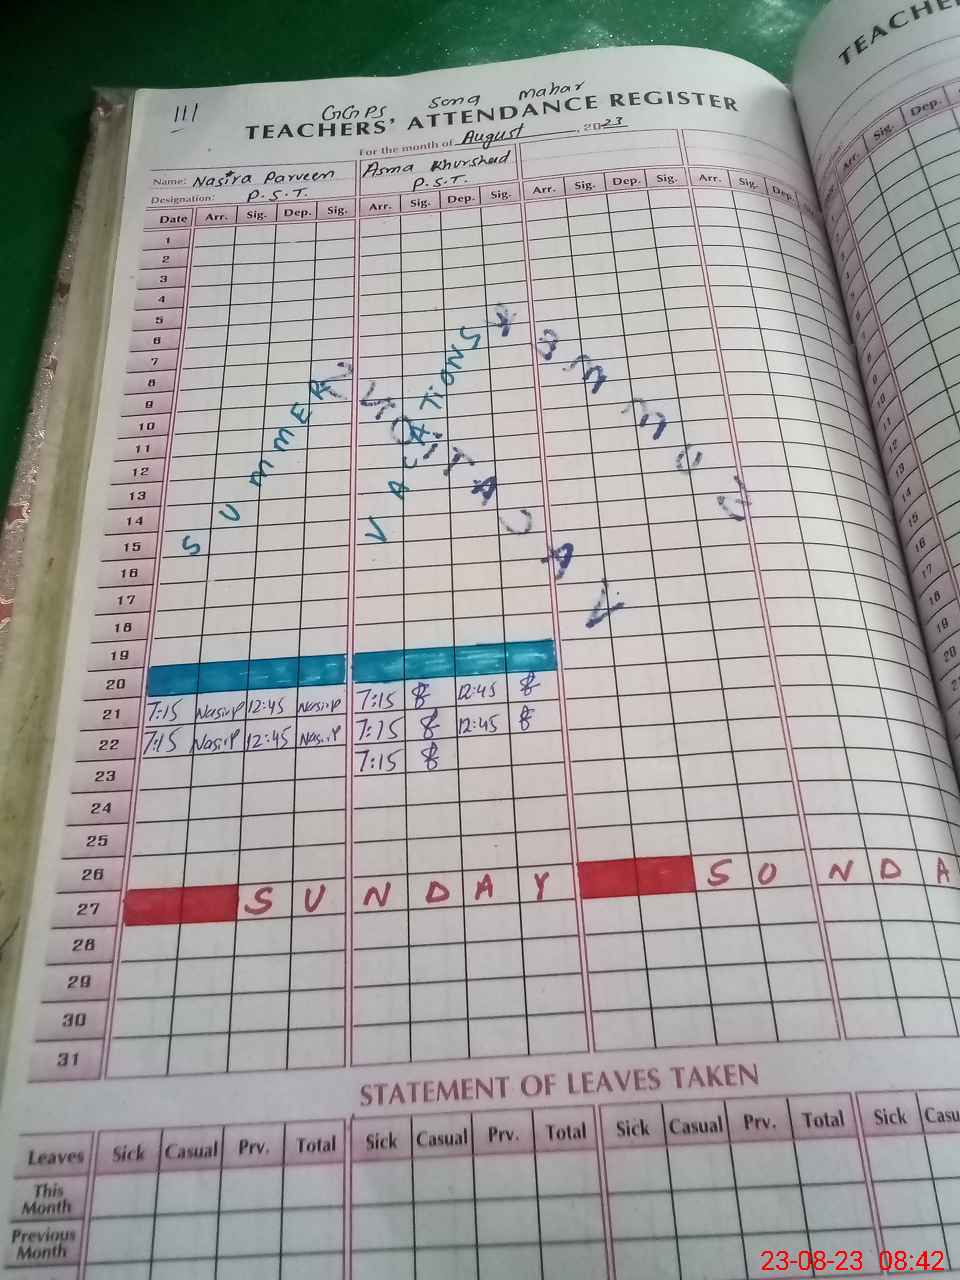 111
GGPS Song mahar
TEACHERS' ATTENDANCE REGISTER
For the month of August, 2023
Name: Nasira Parveen Asma Khurshed
Designation: P.S.T. P.S.T.
Date Arr. Sig. Dep. Sig. Arr. Sig. Dep. Sig. Arr. Sig. Dep. Sig. Arr. Sig. Dep.
1
2
3
4
5
6
7
8
9
10
11
12
13
14
15
16
17
18
19
20
21 7:15 Nasirp 12:45 Nasirp 7:15 12:45
22 7:15 Nasirp 12:45 Nasirp 7:15 12:45
23 7:15
24
25
26
27 SUNDAY SUNDA
28
29
30
31
SUMMER VACATIONS
SUMMER VACATIONS
STATEMENT OF LEAVES TAKEN
Leaves Sick Casual Prv. Total Sick Casual Prv. Total Sick Casual Prv. Total Sick Casu
This Month
Previous Month
TEACHE
Arr. Sig. Dep.
23-08-23 08:42